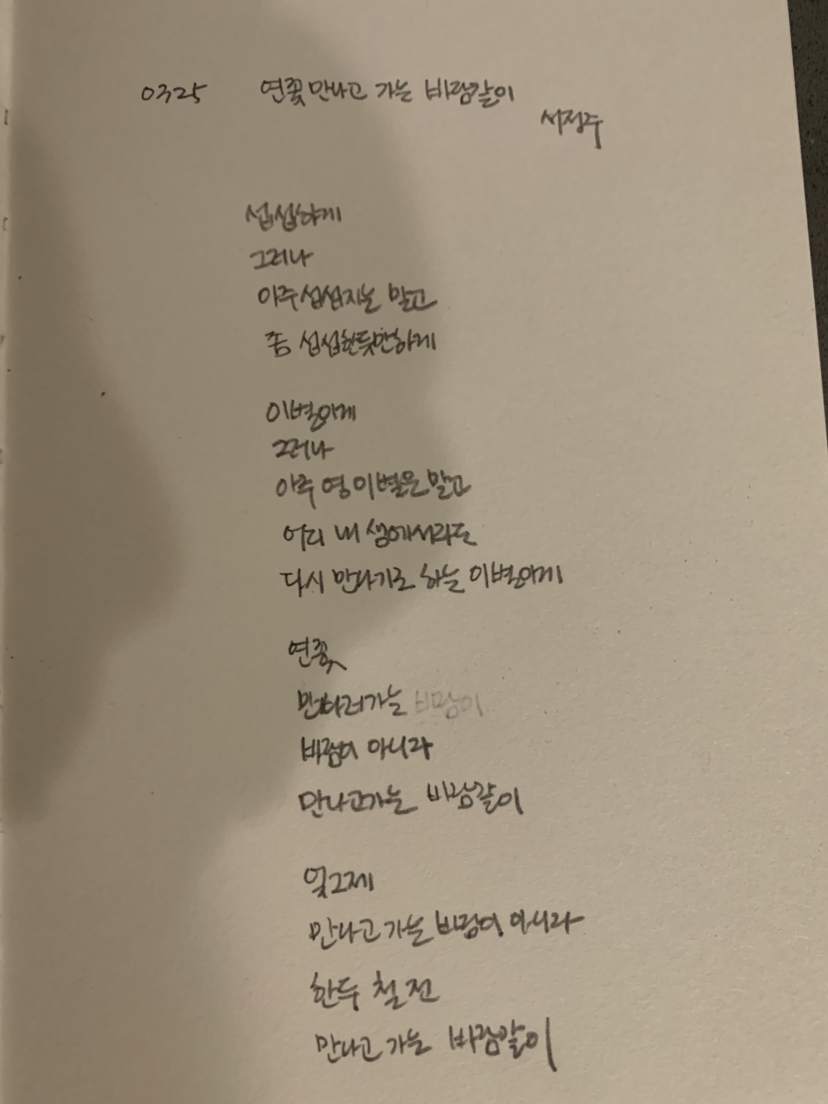 0325 연꽃 만나고 가는 바람같이
서정주
섭섭하게
그러나
아주 섭섭지는 말고
좀 섭섭한듯만 하게
이별이게
그러나
아주 영 이별은 말고
어디 내 생에서라도
다시 만나기로 하는 이별이게
연꽃
만나러 가는 바람이
바람이 아니라
만나고 가는 바람같이
엊그제
만나고 가는 바람이 아니라
한두 철 전
만나고 가는 바람같이